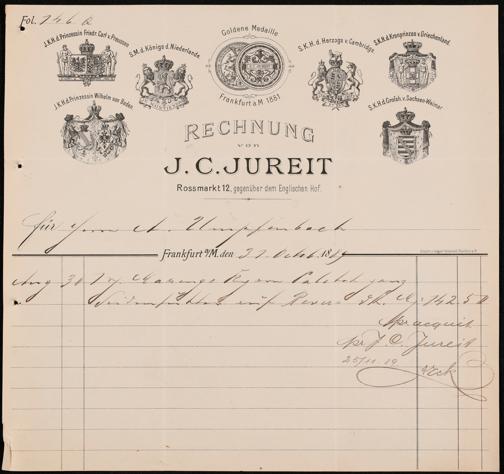 Fol. 246 a
J.K.H.d.Prinzessin Friedr. Carl v. Preussen
S.M.d. Königs d. Niederlande.
Goldene Medaille
S.K.H.d. Herzogs v. Cambridge.
S.K.H.d. Kronprinzen v. Griechenland.
Frankfurt a/M 1881
J.K.H.d. Prinzessin Wilhelm von Baden.
S.K.H.d. Grosh. v. Sachsen-Weimar
RECHNUNG
von
J. C. JUREIT
Rossmarkt 12, gegenüber dem Englischen Hof.
für Herrn A. Umpfenbach
Frankfurt a/M. den 31 Octob. 18
Aug 30
auf Revers 142.50
pr acquit
pr J. C. Jureit
25/11.